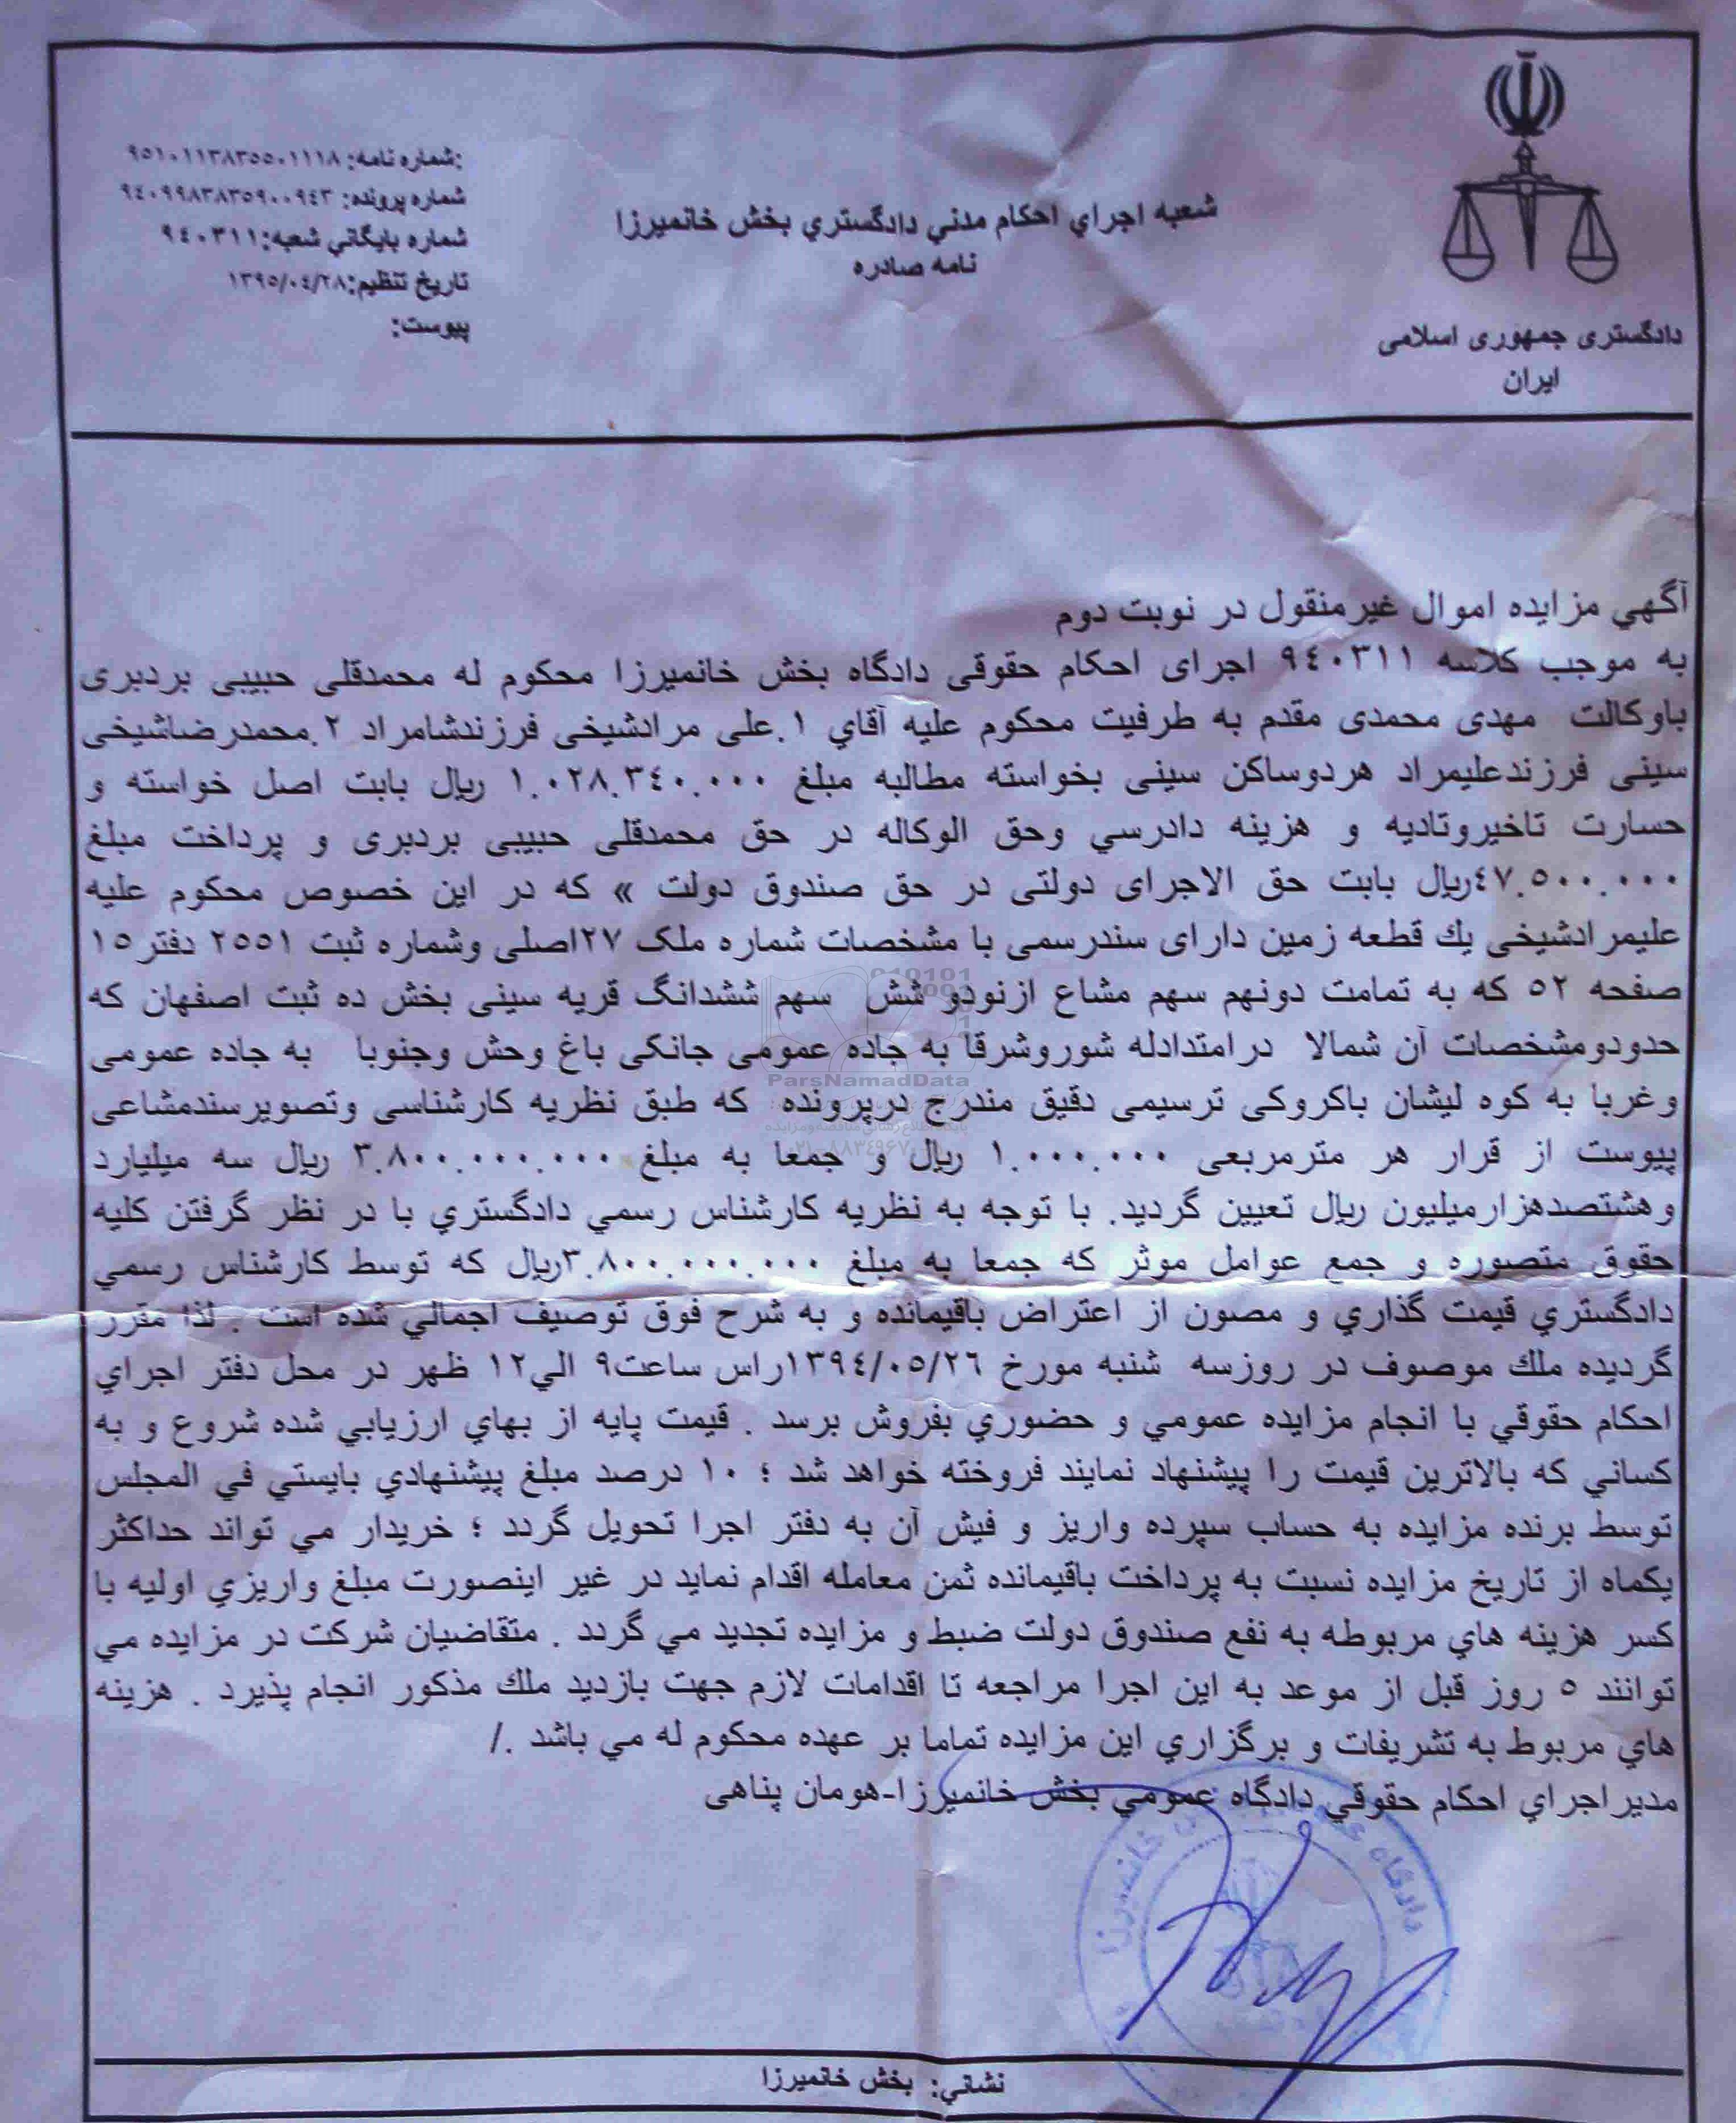 دادگستری جمهوری اسلامی
ایران
شعبه اجراي احکام مدني دادگستري بخش خانمیرزا
نامه صادره
:شماره نامه: ٩٥١٠١١٣٨٣٥٥٠١١١٨
شماره پرونده: ٩٤٠٩٩٨٣٨٣٥٩٠٠٩٤٣
شماره بایگاني شعبه:٩٤٠٣١١
تاریخ تنظیم:١٣٩٥/٠٤/٢٨
پیوست:
آگهي مزایده اموال غیرمنقول در نوبت دوم
به موجب کلاسه ٩٤٠٣١١ اجرای احکام حقوقی دادگاه بخش خانمیرزا محکوم له محمدقلی حبیبی بردبری
باوکالت مهدی محمدی مقدم به طرفیت محکوم علیه آقاي ١.علی مرادشیخی فرزندشامراد ٢.محمدرضاشیخی
سینی فرزندعلیمراد هردوساکن سینی بخواسته مطالبه مبلغ ١.٠٢٨.٣٤٠.٠٠٠ ریال بابت اصل خواسته و
حسارت تاخیروتادیه و هزینه دادرسي وحق الوکاله در حق محمدقلی حبیبی بردبری و پرداخت مبلغ
٤٧.٥٠٠.٠٠٠ریال بابت حق الاجرای دولتی در حق صندوق دولت » که در این خصوص محکوم علیه
علیمرادشیخی یك قطعه زمین دارای سندرسمی با مشخصات شماره ملک ٢٧اصلی وشماره ثبت ٢٥٥١ دفتر١٥
صفحه ٥٢ که به تمامت دونهم سهم مشاع ازنودو شش سهم ششدانگ قریه سینی بخش ده ثبت اصفهان که
حدودومشخصات آن شمالا درامتدادله شوروشرقا به جاده عمومی جانکی باغ وحش وجنوبا به جاده عمومی
وغربا به کوه لیشان باکروکی ترسیمی دقیق مندرج درپرونده که طبق نظریه کارشناسی وتصویرسندمشاعی
پیوست از قرار هر مترمربعی ١.٠٠٠.٠٠٠ ریال و جمعا به مبلغ ٣.٨٠٠.٠٠٠.٠٠٠ ریال سه میلیارد
وهشتصدهزارمیلیون ریال تعیین گردید. با توجه به نظریه کارشناس رسمي دادگستري با در نظر گرفتن کلیه
حقوق متصوره و جمع عوامل موثر که جمعا به مبلغ ٣.٨٠٠.٠٠٠.٠٠٠ریال که توسط کارشناس رسمي
دادگستري قیمت گذاري و مصون از اعتراض باقیمانده و به شرح فوق توصیف اجمالي شده است . لذا مقرر
گردیده ملك موصوف در روزسه شنبه مورخ ١٣٩٤/٠٥/٢٦راس ساعت٩ الي١٢ ظهر در محل دفتر اجراي
احکام حقوقي با انجام مزایده عمومي و حضوري بفروش برسد . قیمت پایه از بهاي ارزیابي شده شروع و به
کساني که بالاترین قیمت را پیشنهاد نمایند فروخته خواهد شد ؛ ١٠ درصد مبلغ پیشنهادي بایستي في المجلس
توسط برنده مزایده به حساب سپرده واریز و فیش آن به دفتر اجرا تحویل گردد ؛ خریدار مي تواند حداکثر
یکماه از تاریخ مزایده نسبت به پرداخت باقیمانده ثمن معامله اقدام نماید در غیر اینصورت مبلغ واریزي اولیه با
کسر هزینه هاي مربوطه به نفع صندوق دولت ضبط و مزایده تجدید مي گردد . متقاضیان شرکت در مزایده مي
توانند ٥ روز قبل از موعد به این اجرا مراجعه تا اقدامات لازم جهت بازدید ملك مذکور انجام پذیرد . هزینه
هاي مربوط به تشریفات و برگزاري این مزایده تماما بر عهده محکوم له مي باشد ./
مدیراجراي احکام حقوقي دادگاه عمومي بخش خانمیرزا-هومان پناهی
نشاني: بخش خانمیرزا
ParsNamadData